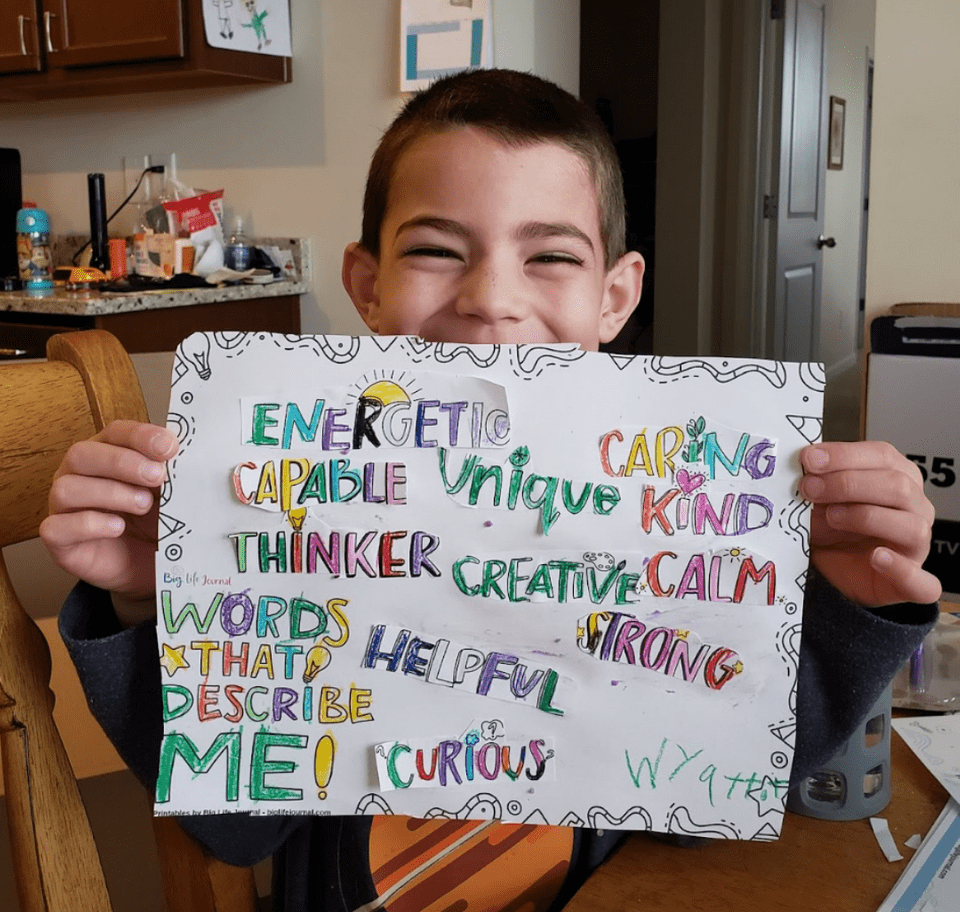 ENERGETIC
CARING
CAPABLE
Unique
KIND
THINKER
CREATIVE
CALM
Big Life Journal
WORDS
THAT
DESCRIBE
ME!
HELPFUL
STRONG
CURIOUS
?
Wyatt
Printables by Big Life Journal - biglifejournal.com
55
TV